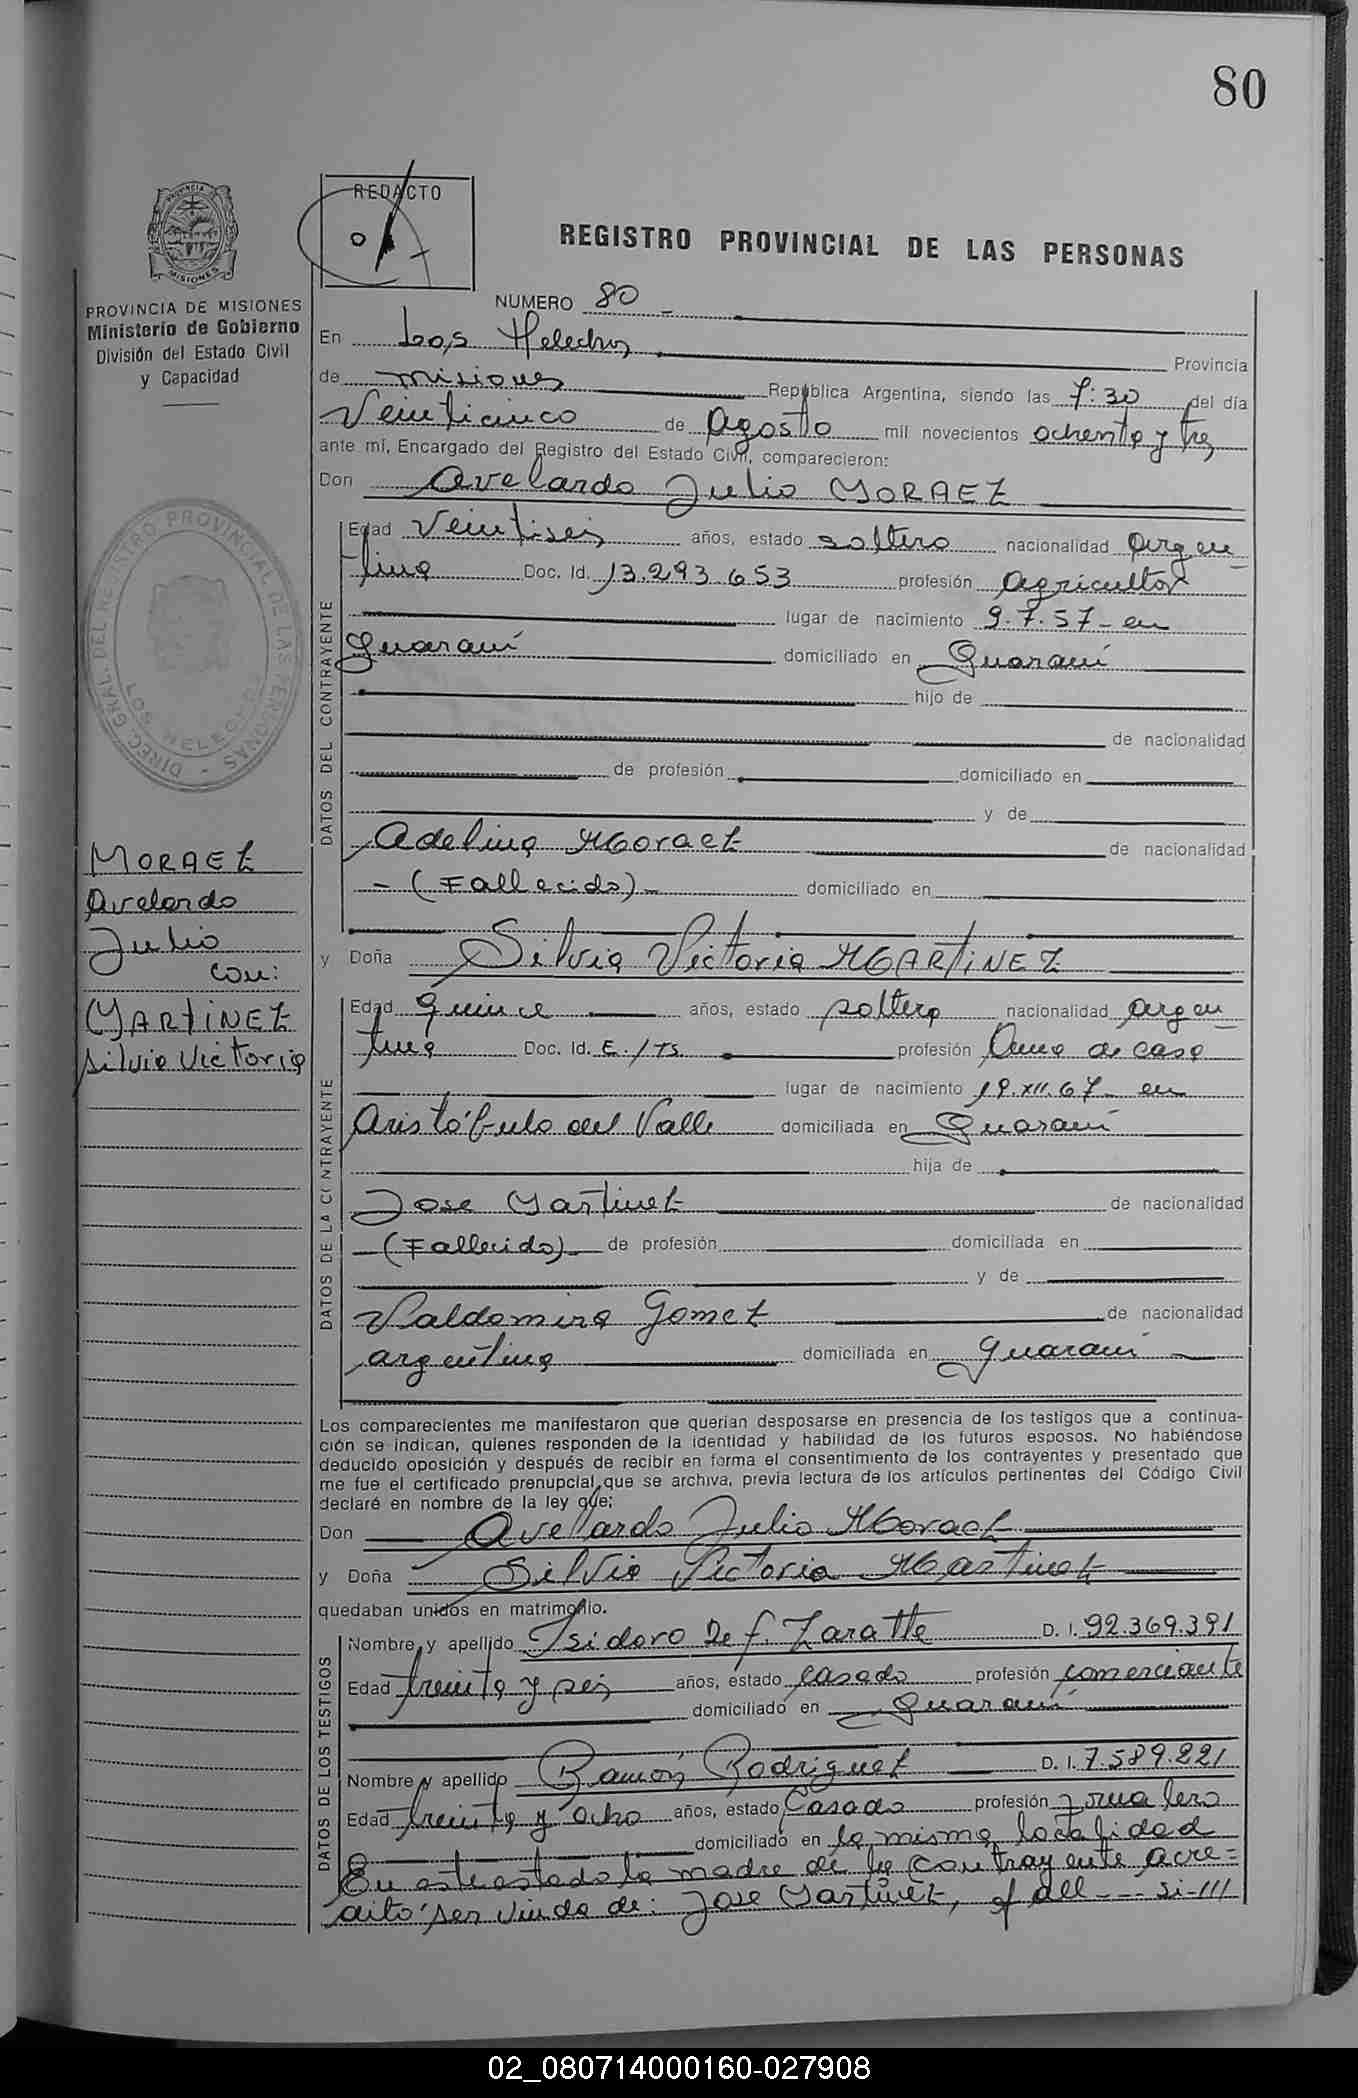 80
REDACTO
REGISTRO PROVINCIAL DE LAS PERSONAS
PROVINCIA DE MISIONES
Ministerio de Gobierno
División del Estado Civil
y Capacidad
NUMERO 80
En Los Helechos Provincia
de Misiones República Argentina, siendo las 7:30 del día
Veinticinco de Agosto mil novecientos ochenta y tres
ante mí, Encargado del Registro del Estado Civil, comparecieron:
Don Avelardo Julio MORAEZ
DIREC. GRAL. DEL REGISTRO PROVINCIAL DE LAS PERSONAS
LOS HELECHOS
MORAEZ
Avelardo
Julio
con:
MARTINEZ
Silvia Victoria
DATOS DEL CONTRAYENTE
Edad Veintiseis años, estado soltero nacionalidad Argen
tina Doc. Id. 13.293.653 profesión Agricultor
lugar de nacimiento 9.7.57- en
Guaraní domiciliado en Guaraní
hijo de
de nacionalidad
de profesión domiciliado en
y de
Adelina Moraez de nacionalidad
- (Fallecida) - domiciliado en
y Doña Silvia Victoria MARTINEZ
DATOS DE LA CONTRAYENTE
Edad quince años, estado soltera nacionalidad Argen
tina Doc. Id. E./TS. profesión Ama de casa
lugar de nacimiento 19.XII.67- en
Aristóbulo del Valle domiciliada en Guaraní
hija de
Jose Martinez de nacionalidad
- (Fallecido) - de profesión domiciliada en
y de
Valdomira Gomez de nacionalidad
argentina domiciliada en Guaraní
Los comparecientes me manifestaron que querian desposarse en presencia de los testigos que a continua-
ción se indican, quienes responden de la identidad y habilidad de los futuros esposos. No habiéndose
deducido oposición y después de recibir en forma el consentimiento de los contrayentes y presentado que
me fue el certificado prenupcial que se archiva, previa lectura de los artículos pertinentes del Código Civil
declaré en nombre de la ley que:
Don Avelardo Julio Moraez
y Doña Silvia Victoria Martinez
quedaban unidos en matrimonio.
DATOS DE LOS TESTIGOS
Nombre y apellido Isidoro De f. Zaratte D. I. 92.369.391
Edad treinta y seis años, estado casado profesión comerciante
domiciliado en Guaraní
Nombre y apellido Ramón Rodriguez D. I. 7.589.221
Edad treinta y ocho años, estado Casado profesión Jornalero
domiciliado en la misma localidad
En este estado la madre de la contrayente acre=
ditó ser viuda de: Jose Martinez,
02_080714000160-027908